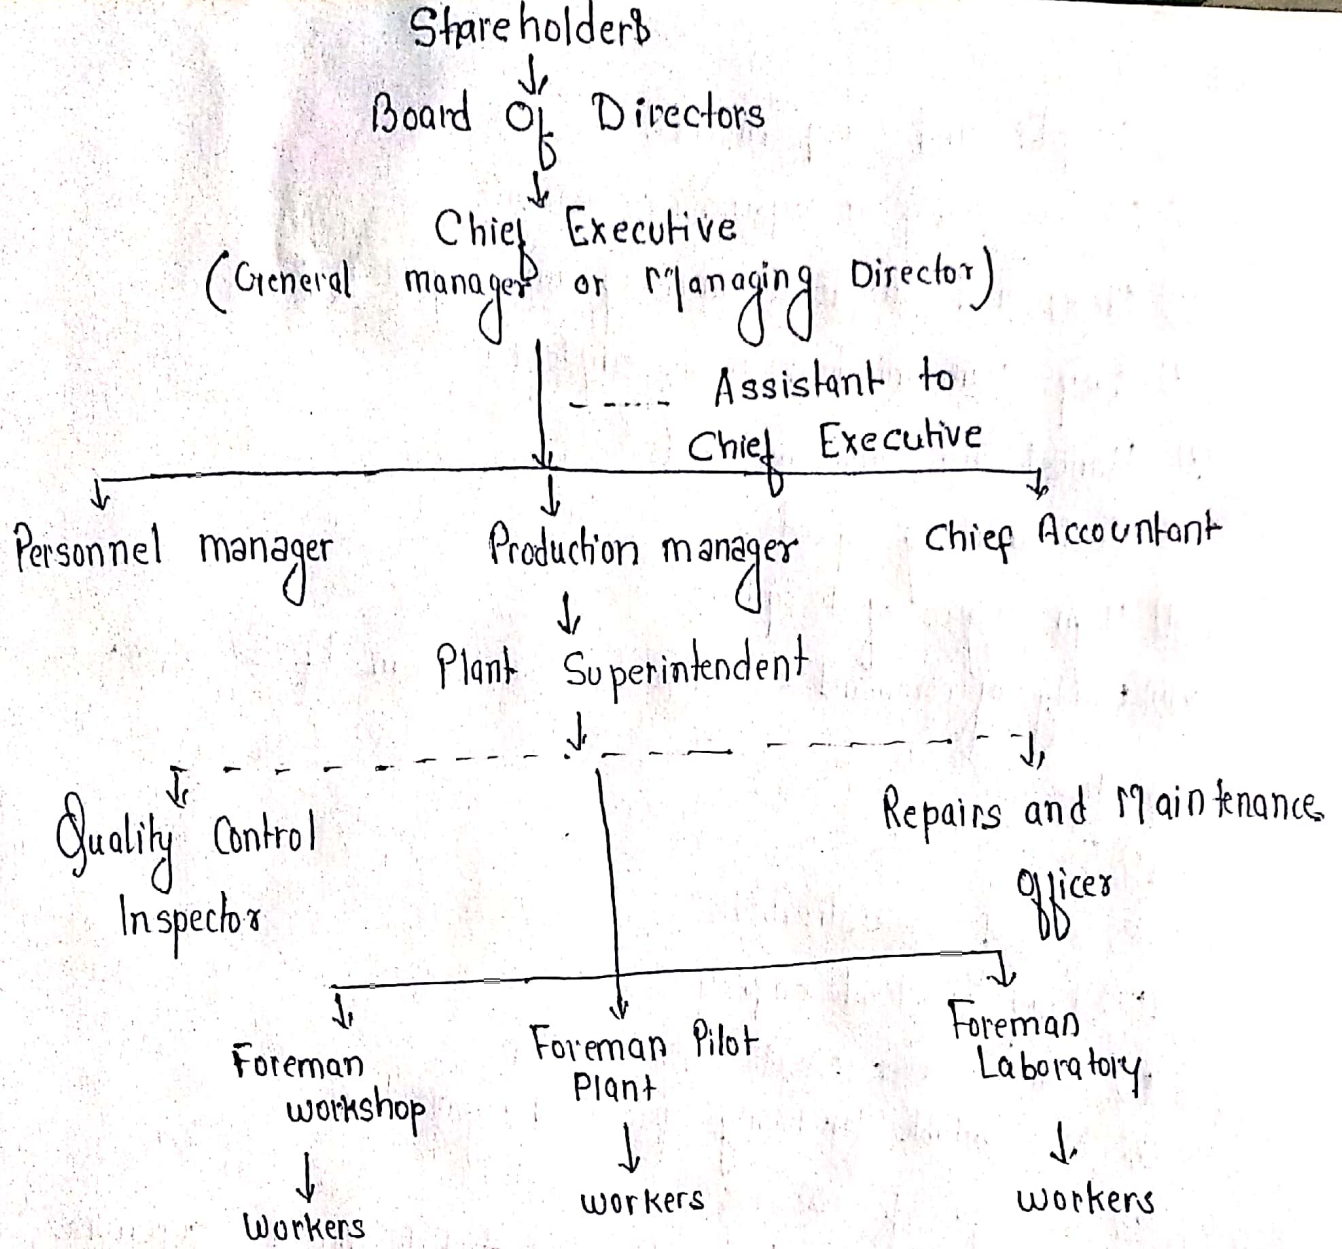 Shareholders
Board Of Directors
Chief Executive
(General manager or Managing Director)
Assistant to
Chief Executive
Personnel manager Production manager Chief Accountant
Plant Superintendent
Quality Control
Inspector
Repairs and Maintenance
Officer
Foreman
workshop
Foreman Pilot
Plant
Foreman
Laboratory
Workers workers workers